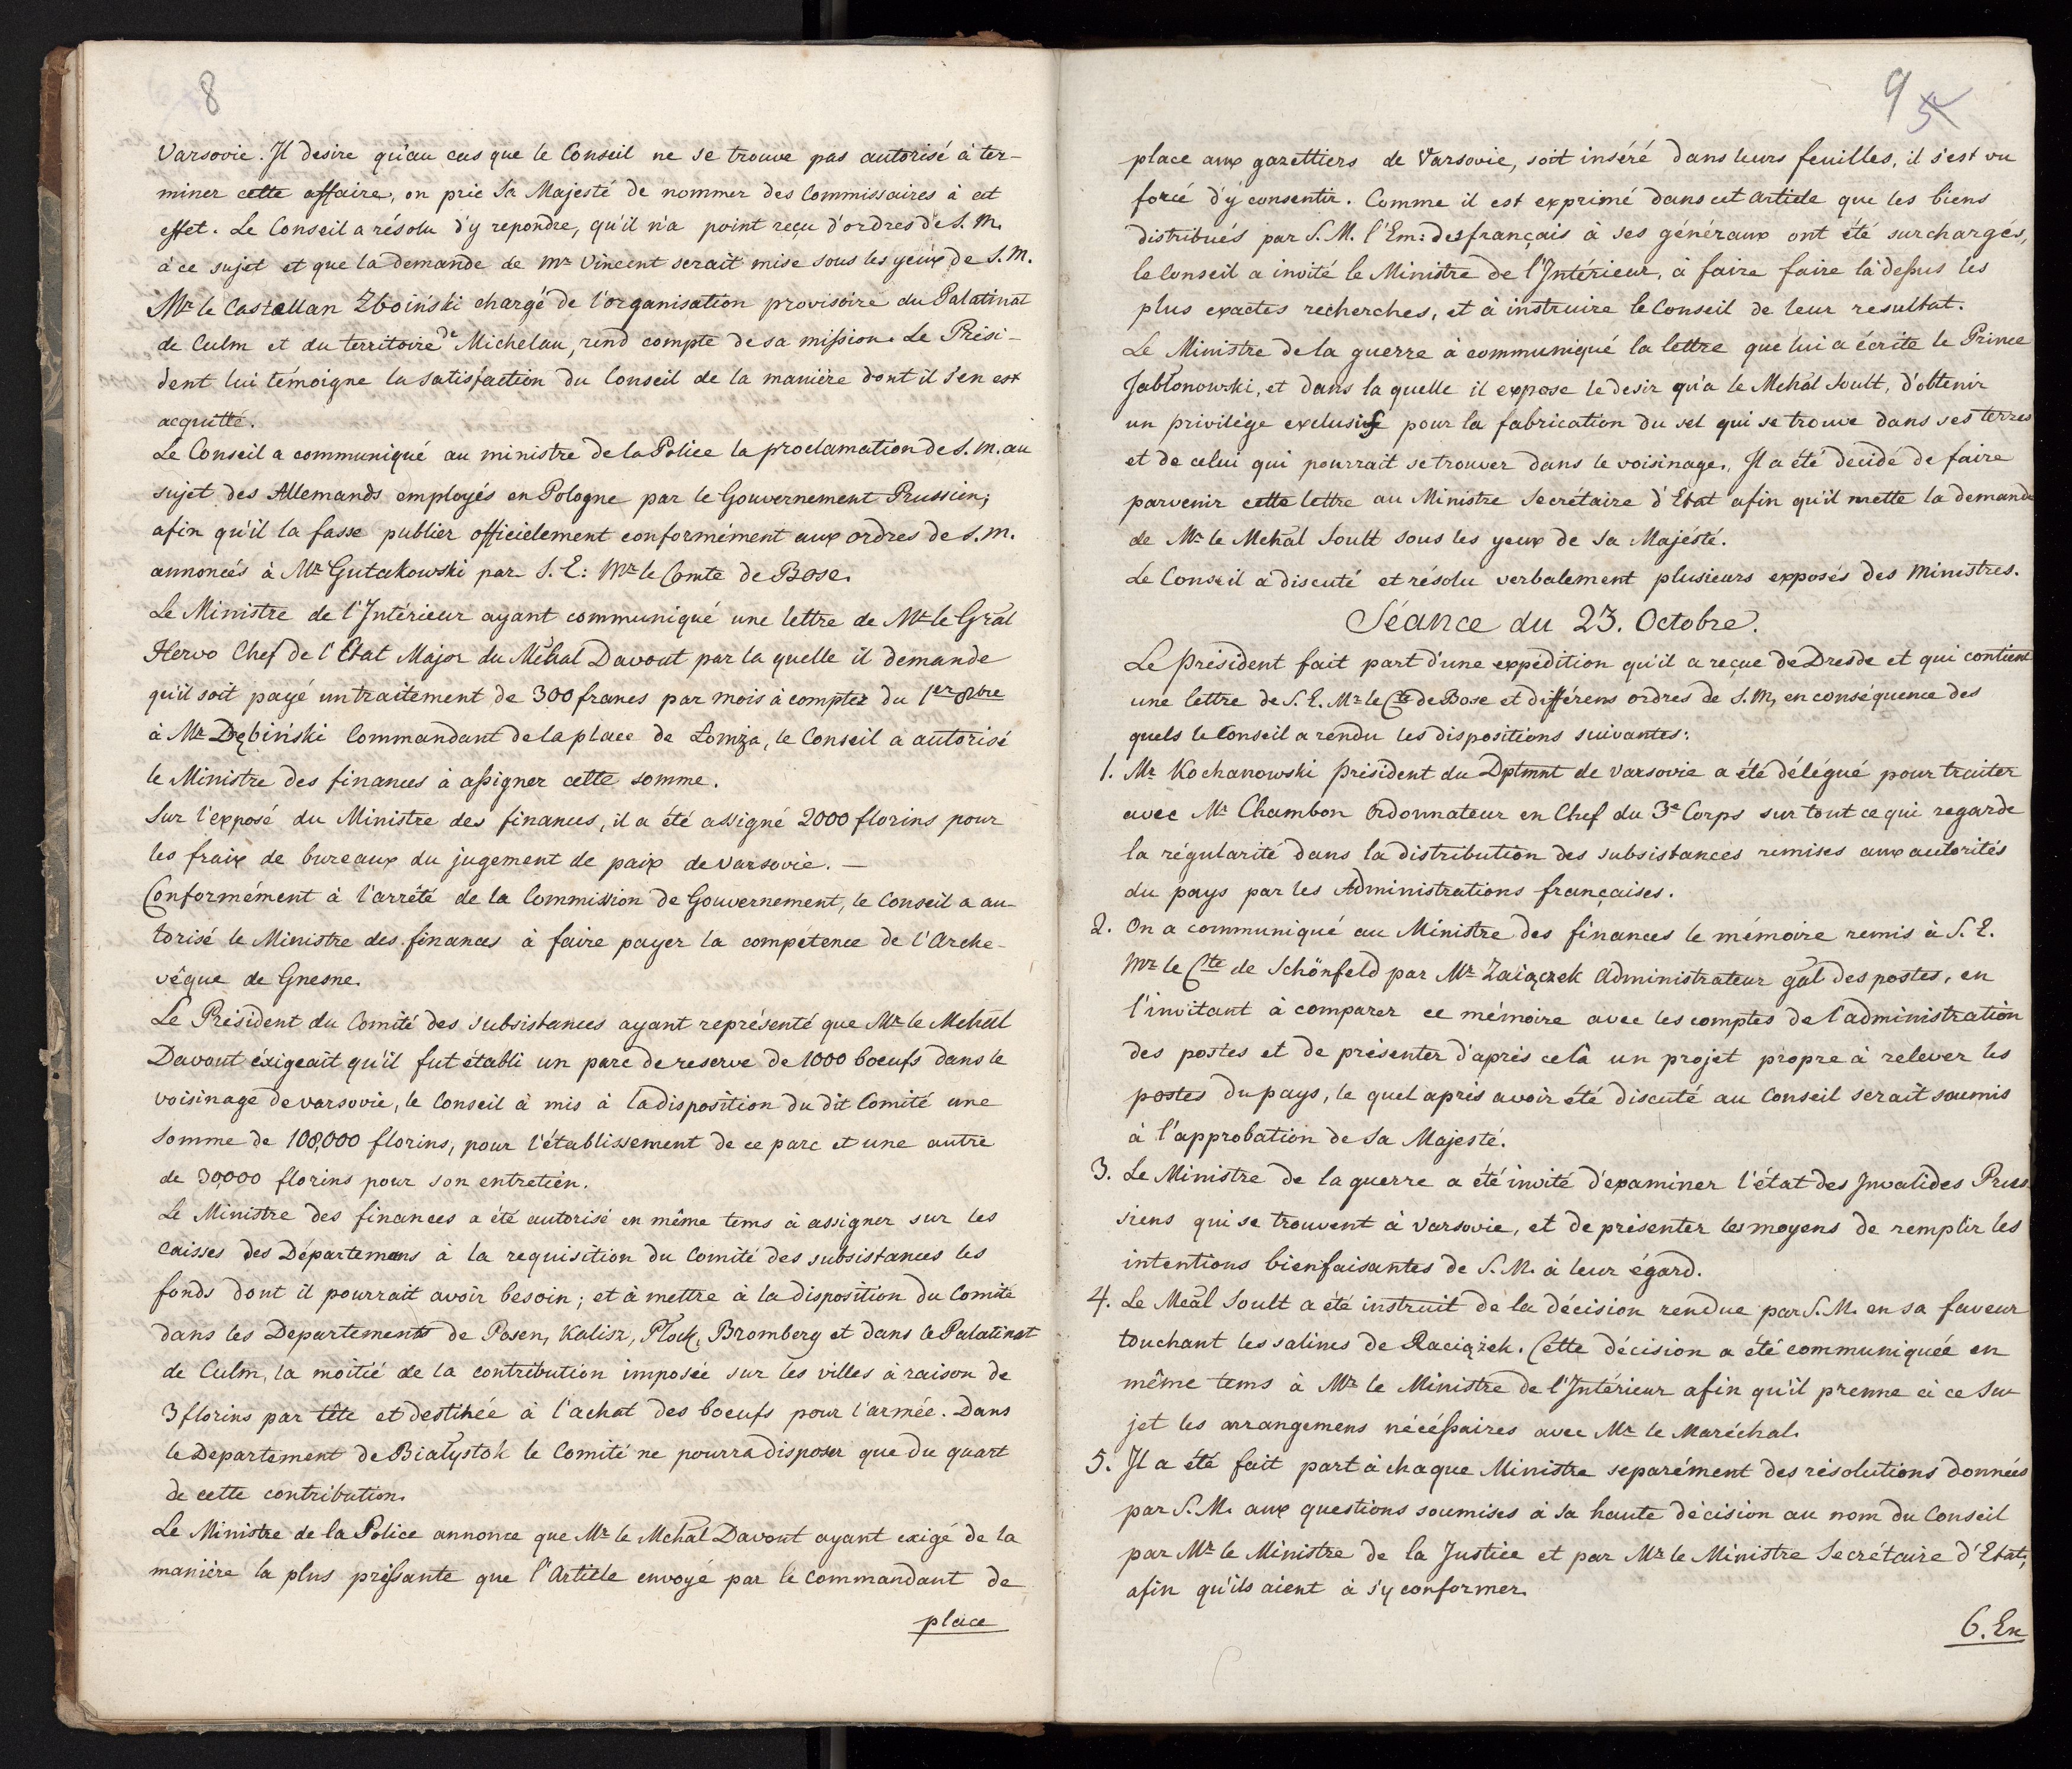 8
Varsovie. Il desire qu'au cas que le Conseil ne se trouve pas autorisé à ter-
miner cette affaire, on prie Sa Majesté de nommer des Commissaires à cet
effet. Le Conseil a résolu d'y repondre, qu'il n'a point reçu d'ordres de S. M.
à ce sujet et que la demande de Mr Vincent serait mise sous les yeux de S. M.
Mr le Castellan Zboiński chargé de l'organisation provisoire du Palatinat
de Culm et du territoire de Michelau, rend compte de sa mission. Le Prési-
dent lui témoigne la satisfaction du Conseil de la manière dont il s'en est
acquitté.
Le Conseil a communiqué au ministre de la Police la proclamation de S. M. au
sujet des Allemands employés en Pologne par le Gouvernement Prussien;
afin qu'il la fasse publier officielement conformément aux ordres de S. M.
annoncés à Mr Gutakowski par S. E: Mr le Comte de Bose.
Le Ministre de l'Intérieur ayant communiqué une lettre de Mr le Gral
Hervo Chef de l'Etat Major du Mehal Davout par la quelle il demande
qu'il soit payé un traitement de 300 francs par mois à compter du 1er 8bre
à Mr Dębiński Commandant de la place de Łomża, le Conseil a autorisé
le Ministre des finances à assigner cette somme.
Sur l'exposé du Ministre des finances, il a été assigné 2000 florins pour
les fraix de bureaux du jugement de paix de Varsovie. —
Conformément à l'arrêté de la Commission de Gouvernement, le Conseil a au-
torisé le Ministre des finances à faire payer la compétence de l'Arche-
vêque de Gnesne.
Le Président du Comité des subsistances ayant représenté que Mr le Mehal
Davout éxigeait qu'il fut établi un parc de reserve de 1000 boeufs dans le
voisinage de Varsovie, le Conseil à mis à la disposition du dit Comité une
somme de 108,000 florins, pour l'établissement de ce parc et une autre
de 30,000 florins pour son entretien.
Le Ministre des finances a été autorisé en même tems à assigner sur les
caisses des Départemens à la requisition du Comité des subsistances les
fonds dont il pourrait avoir besoin; et à mettre à la disposition du Comité
dans les Departements de Posen, Kalisz, Płock, Bromberg et dans le Palatinat
de Culm, la moitié de la contribution imposée sur les villes à raison de
3 florins par tête et destinée à l'achat des boeufs pour l'armée. Dans
le Departement de Białystok le Comité ne pourra disposer que du quart
de cette contribution.
Le Ministre de la Police annonce que Mr le Mchal Davout ayant exigé de la
manière la plus pressante que l'Article envoyé par le Commandant de
place
9
5
place aux gazettiers de Varsovie, soit inséré dans leurs feuilles, il s'est vu
forcé d'y consentir. Comme il est exprimé dans cet article que les biens
distribués par S. M. l'Em: des français à ses généraux ont été surchargés,
le Conseil a invité le Ministre de l'Intérieur, à faire faire là dessus les
plus exactes recherches, et à instruire le Conseil de leur resultat.
Le Ministre de la guerre à communiqué la lettre que lui a écrite le Prince
Jabłonowski, et dans la quelle il expose le desir qu'a le Mehal Soult, d'obtenir
un privilège exclusif pour la fabrication du sel qui se trouve dans ses terres
et de celui qui pourrait se trouver dans le voisinage. Il a été decidé de faire
parvenir cette lettre au Ministre Secrétaire d'Etat afin qu'il mette la demande
de Mr le Mehal Soult sous les yeux de Sa Majésté.
Le Conseil a discuté et résolu verbalement plusieurs exposés des Ministres.
Séance du 23. Octobre.
Le Président fait part d'une expédition qu'il a reçue de Dresde et qui contient
une lettre de S. E. Mr le Cte de Bose et différens ordres de S. M, en conséquence des
quels le Conseil a rendu les dispositions suivantes:
1. Mr Kochanowski Président du Dptmnt de Varsovie a été délégué pour traiter
avec Mr Chambon Ordonnateur en Chef du 3e Corps sur tout ce qui regarde
la régularité dans la distribution des subsistances remises aux autorités
du pays par les Administrations françaises.
2. On a communiqué au Ministre des finances le mémoire remis à S. E.
Mr le Cte de Schönfeld par Mr Zaiączek Administrateur gal des postes, en
l'invitant à comparer ce mémoire avec les comptes de l'administration
des postes et de présenter d'après celà un projet propre à relever les
postes du pays, le quel après avoir été discuté au Conseil serait soumis
à l'approbation de Sa Majesté.
3. Le Ministre de la guerre a été invité d'examiner l'état des Invalides Prus-
siens qui se trouvent à Varsovie, et de présenter les moyens de remplir les
intentions bienfaisantes de S. M. à leur égard.
4. Le Meal Soult a été instruit de la décision rendue par S. M. en sa faveur
touchant les salines de Raciążek. Cette décision a été communiquée en
même tems à Mr le Ministre de l'Intérieur afin qu'il prenne à ce su-
jet les arrangemens nécéssaires avec Mr le Maréchal.
5. Il a été fait part à chaque Ministre separément des résolutions données
par S. M. aux questions soumises à sa haute décision au nom du Conseil
par Mr le Ministre de la Justice et par Mr le Ministre Secrétaire d'Etat,
afin qu'ils aient à s'y conformer.
6. En